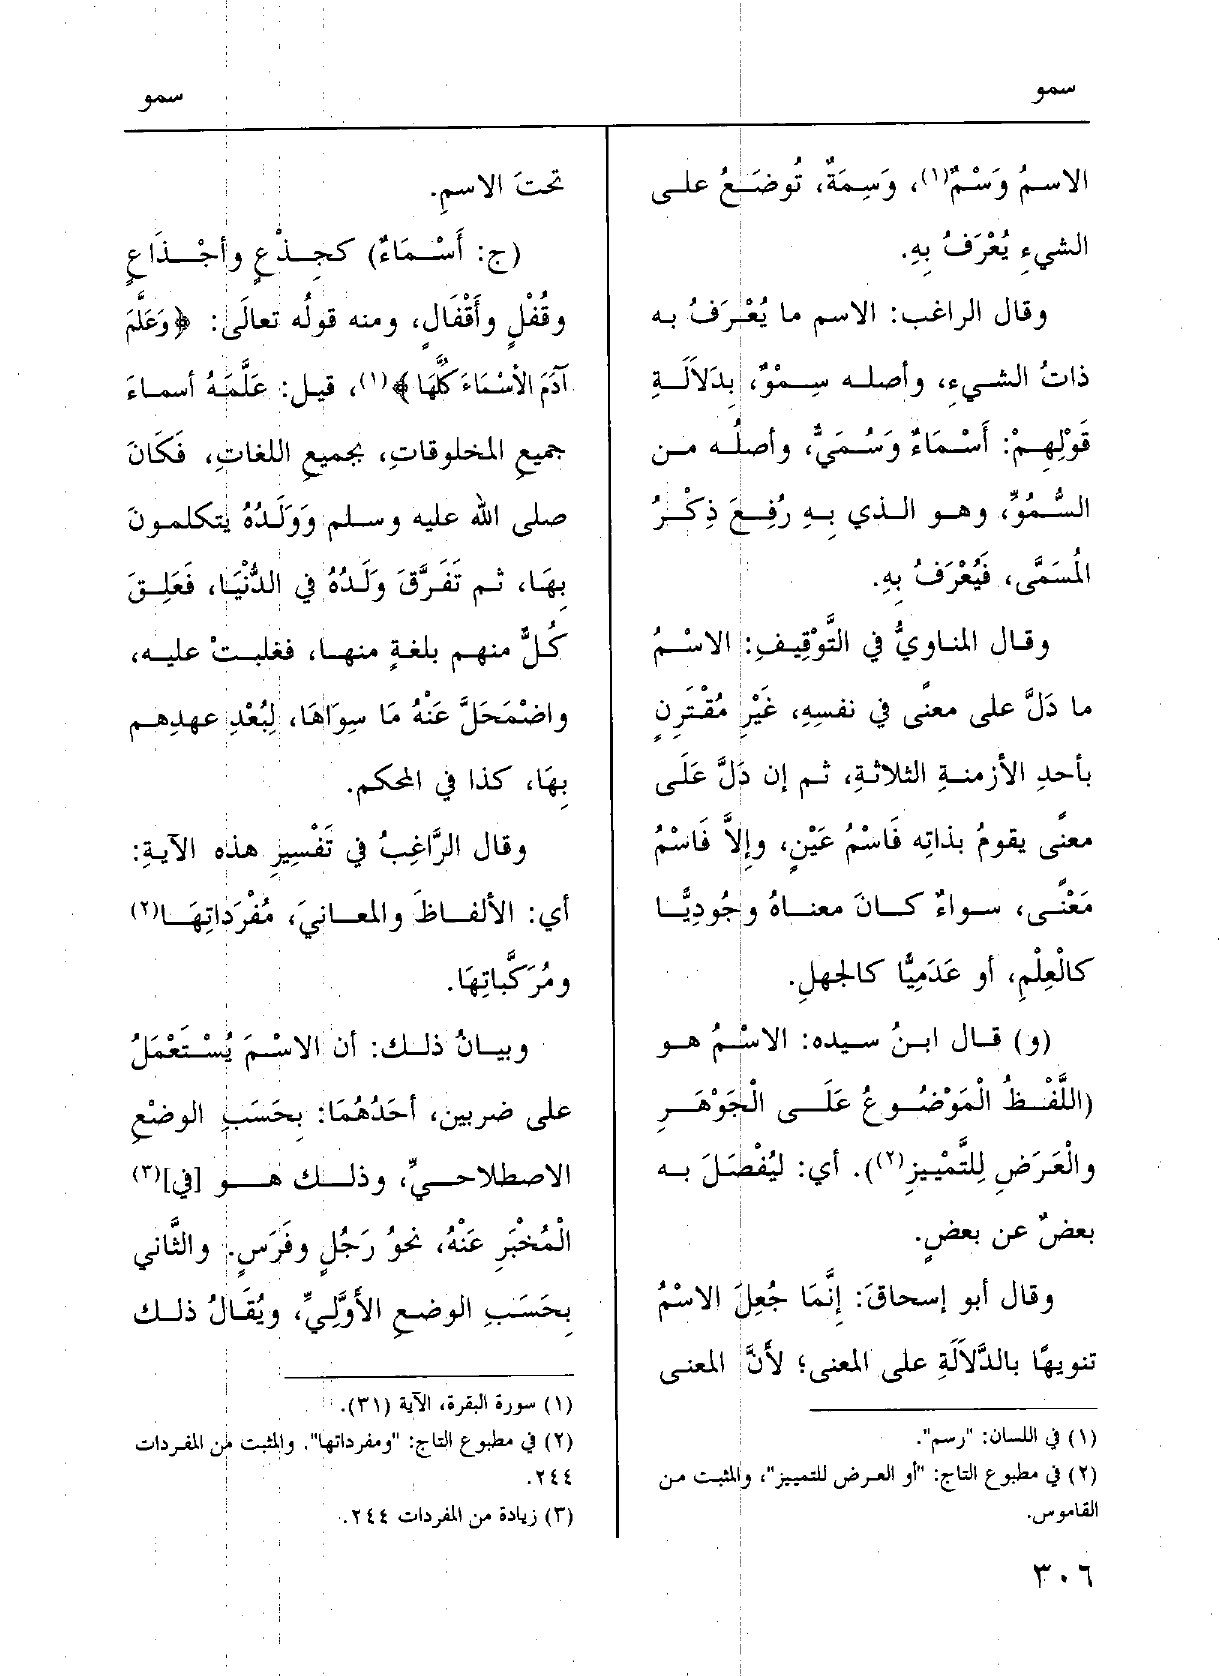 سمو
سمو
الاسمُ وَسْمٌ(١)، وَسِمَةٌ، تُوضَعُ على
الشيءِ يُعْرَفُ بِهِ.
وقال الراغب: الاسم ما يُعْرَفُ به
ذاتُ الشيءِ، وأصله سِمْوٌ، بِدَلاَلَةِ
قَوْلِهِمْ: أَسْمَاءٌ وَسُمَيٌّ، وأصلُه من
السُّمُوِّ، وهو الذي بِهِ رُفِعَ ذِكْرُ
المُسَمَّى، فَيُعْرَفُ بِهِ.
وقال المناويُّ في التَّوْقِيفِ: الاسْمُ
ما دَلَّ على معنًى في نفسِهِ، غَيْرِ مُقْتَرِنٍ
بأحدِ الأزمنةِ الثلاثةِ، ثم إن دَلَّ عَلَى
معنًى يقومُ بذاتِه فَاسْمُ عَيْنٍ، وإِلاَّ فَاسْمُ
مَعْنًى، سواءٌ كانَ معناهُ وجُودِيًّا
كالْعِلْمِ، أو عَدَمِيًّا كالجهلِ.
(و) قال ابنُ سيده: الاسْمُ هو
(اللَّفْظُ الْمَوْضُوعُ عَلَى الْجَوْهَرِ
والْعَرَضِ لِلتَّمْيِيزِ(٢)). أي: لِيُفْصَلَ به
بعضٌ عن بعضٍ.
وقال أبو إسحاقَ: إِنَّمَا جُعِلَ الاسْمُ
تنويهًا بالدَّلاَلَةِ على المعنى؛ لأَنَّ المعنى
(١) في اللسان: "رسم".
(٢) في مطبوع التاج: "أو العرض للتمييز"، والمثبت من
القاموس.
٣٠٦
تحتَ الاسمِ.
(ج: أَسْمَاءٌ) كجِذْعٍ وأجْذَاعٍ
وقُفْلٍ وأَقْفَالٍ، ومنه قولُه تعالَى: ﴿وَعَلَّمَ
آدَمَ الأَسْمَاءَ كُلَّهَا﴾(١)، قيل: عَلَّمَهُ أسماءَ
جميعِ المخلوقاتِ، بجميعِ اللغاتِ، فَكَانَ
صلى الله عليه وسلم وَوَلَدُهُ يتكلمونَ
بِهَا، ثم تَفَرَّقَ وَلَدُهُ في الدُّنْيَا، فَعَلِقَ
كُلٌّ منهم بلغةٍ منها، فغلبتْ عليه،
واضْمَحَلَّ عَنْهُ مَا سِوَاهَا، لِبُعْدِ عهدِهم
بِهَا، كذا في المحكم.
وقال الرَّاغِبُ في تَفْسِيرِ هذه الآيةِ:
أي: الألفاظَ والمعانيَ، مُفْرَدَاتِهَا(٢)
ومُرَكَّباتِهَا.
وبيانُ ذلك: أن الاسْمَ يُسْتَعْمَلُ
على ضربين، أحَدُهُمَا: بِحَسَبِ الوضْعِ
الاصطلاحيِّ، وذلك هو [في](٣)
الْمُخْبَرِ عَنْهُ، نحوُ رَجُلٍ وفَرَسٍ. والثَّاني
بِحَسَبِ الوضعِ الأَوَّلِيِّ، ويُقَالُ ذلك
(١) سورة البقرة، الآية (٣١).
(٢) في مطبوع التاج: "ومفرداتها". والمثبت من المفردات
٢٤٤.
(٣) زيادة من المفردات ٢٤٤.